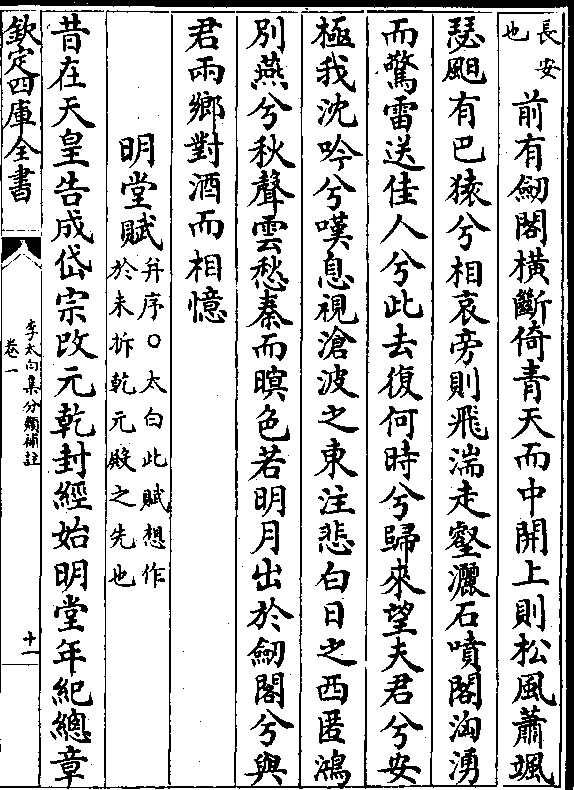 長安
也
前有劒閣橫斷倚青天而中開上則松風蕭颯
瑟䫻有巴猿兮相哀旁則飛湍走壑灑石噴閣洶湧
而驚雷送佳人兮此去復何時兮歸來望夫君兮安
極我沈吟兮嘆息視滄波之東注悲白日之西匿鴻
別燕兮秋聲雲愁秦而暝色若明月出於劒閣兮與
君兩鄉對酒而相憶
明堂賦
并序○太白此賦想作
於未拆乾元殿之先也
昔在天皇告成岱宗改元乾封經始明堂年紀總章
欽定四庫全書
李太白集分類補註
卷一
十一